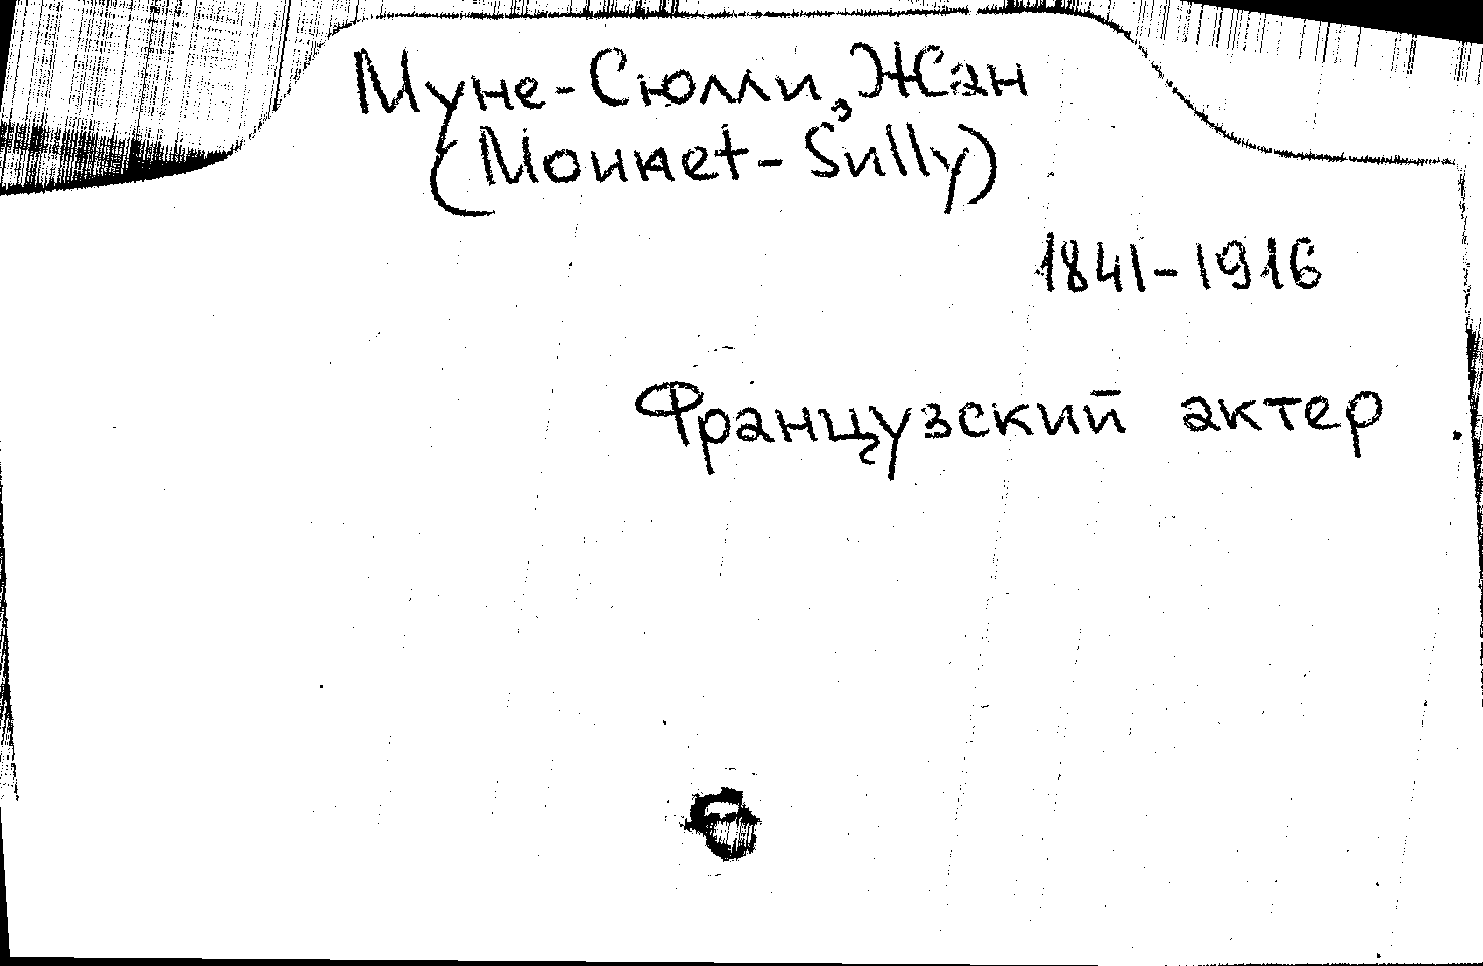 Муне-Сюлли, Жан
(Mounet-Sully)
1841-1916
Французский актер